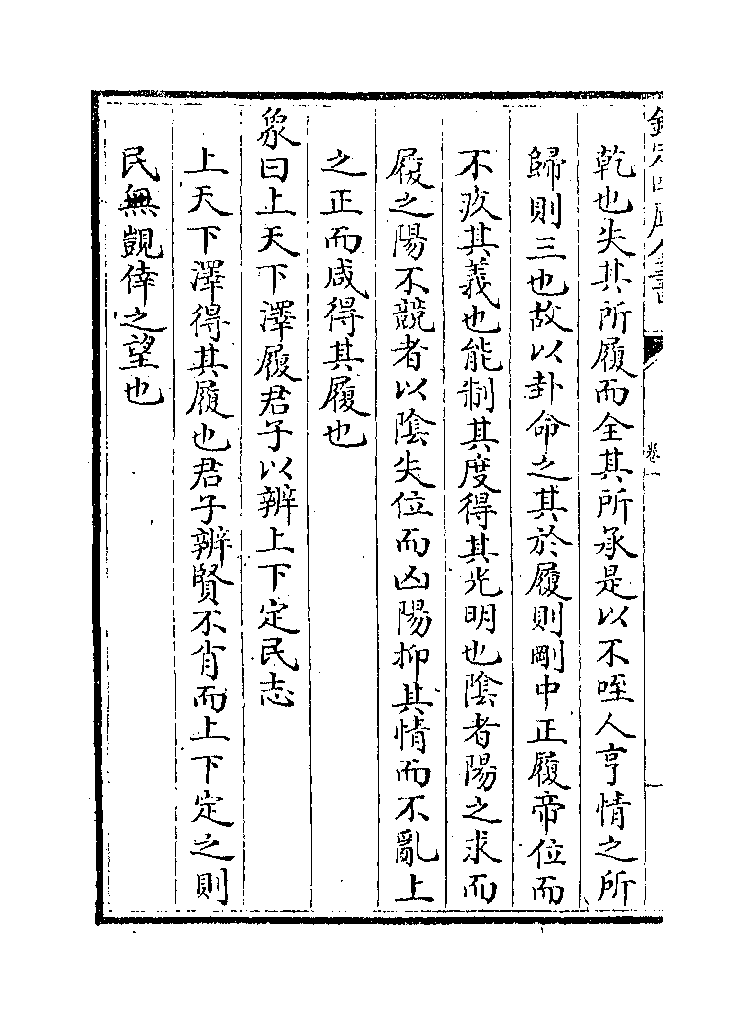 欽定四庫全書
卷一
乾也失其所履而全其所承是以不咥人亨情之所
歸則三也故以卦命之其於履則剛中正履帝位而
不疚其義也能制其度得其光明也陰者陽之求而
履之陽不競者以陰失位而凶陽抑其情而不亂上
之正而咸得其履也
象曰上天下澤履君子以辨上下定民志
上天下澤得其履也君子辨賢不肖而上下定之則
民無覬倖之望也